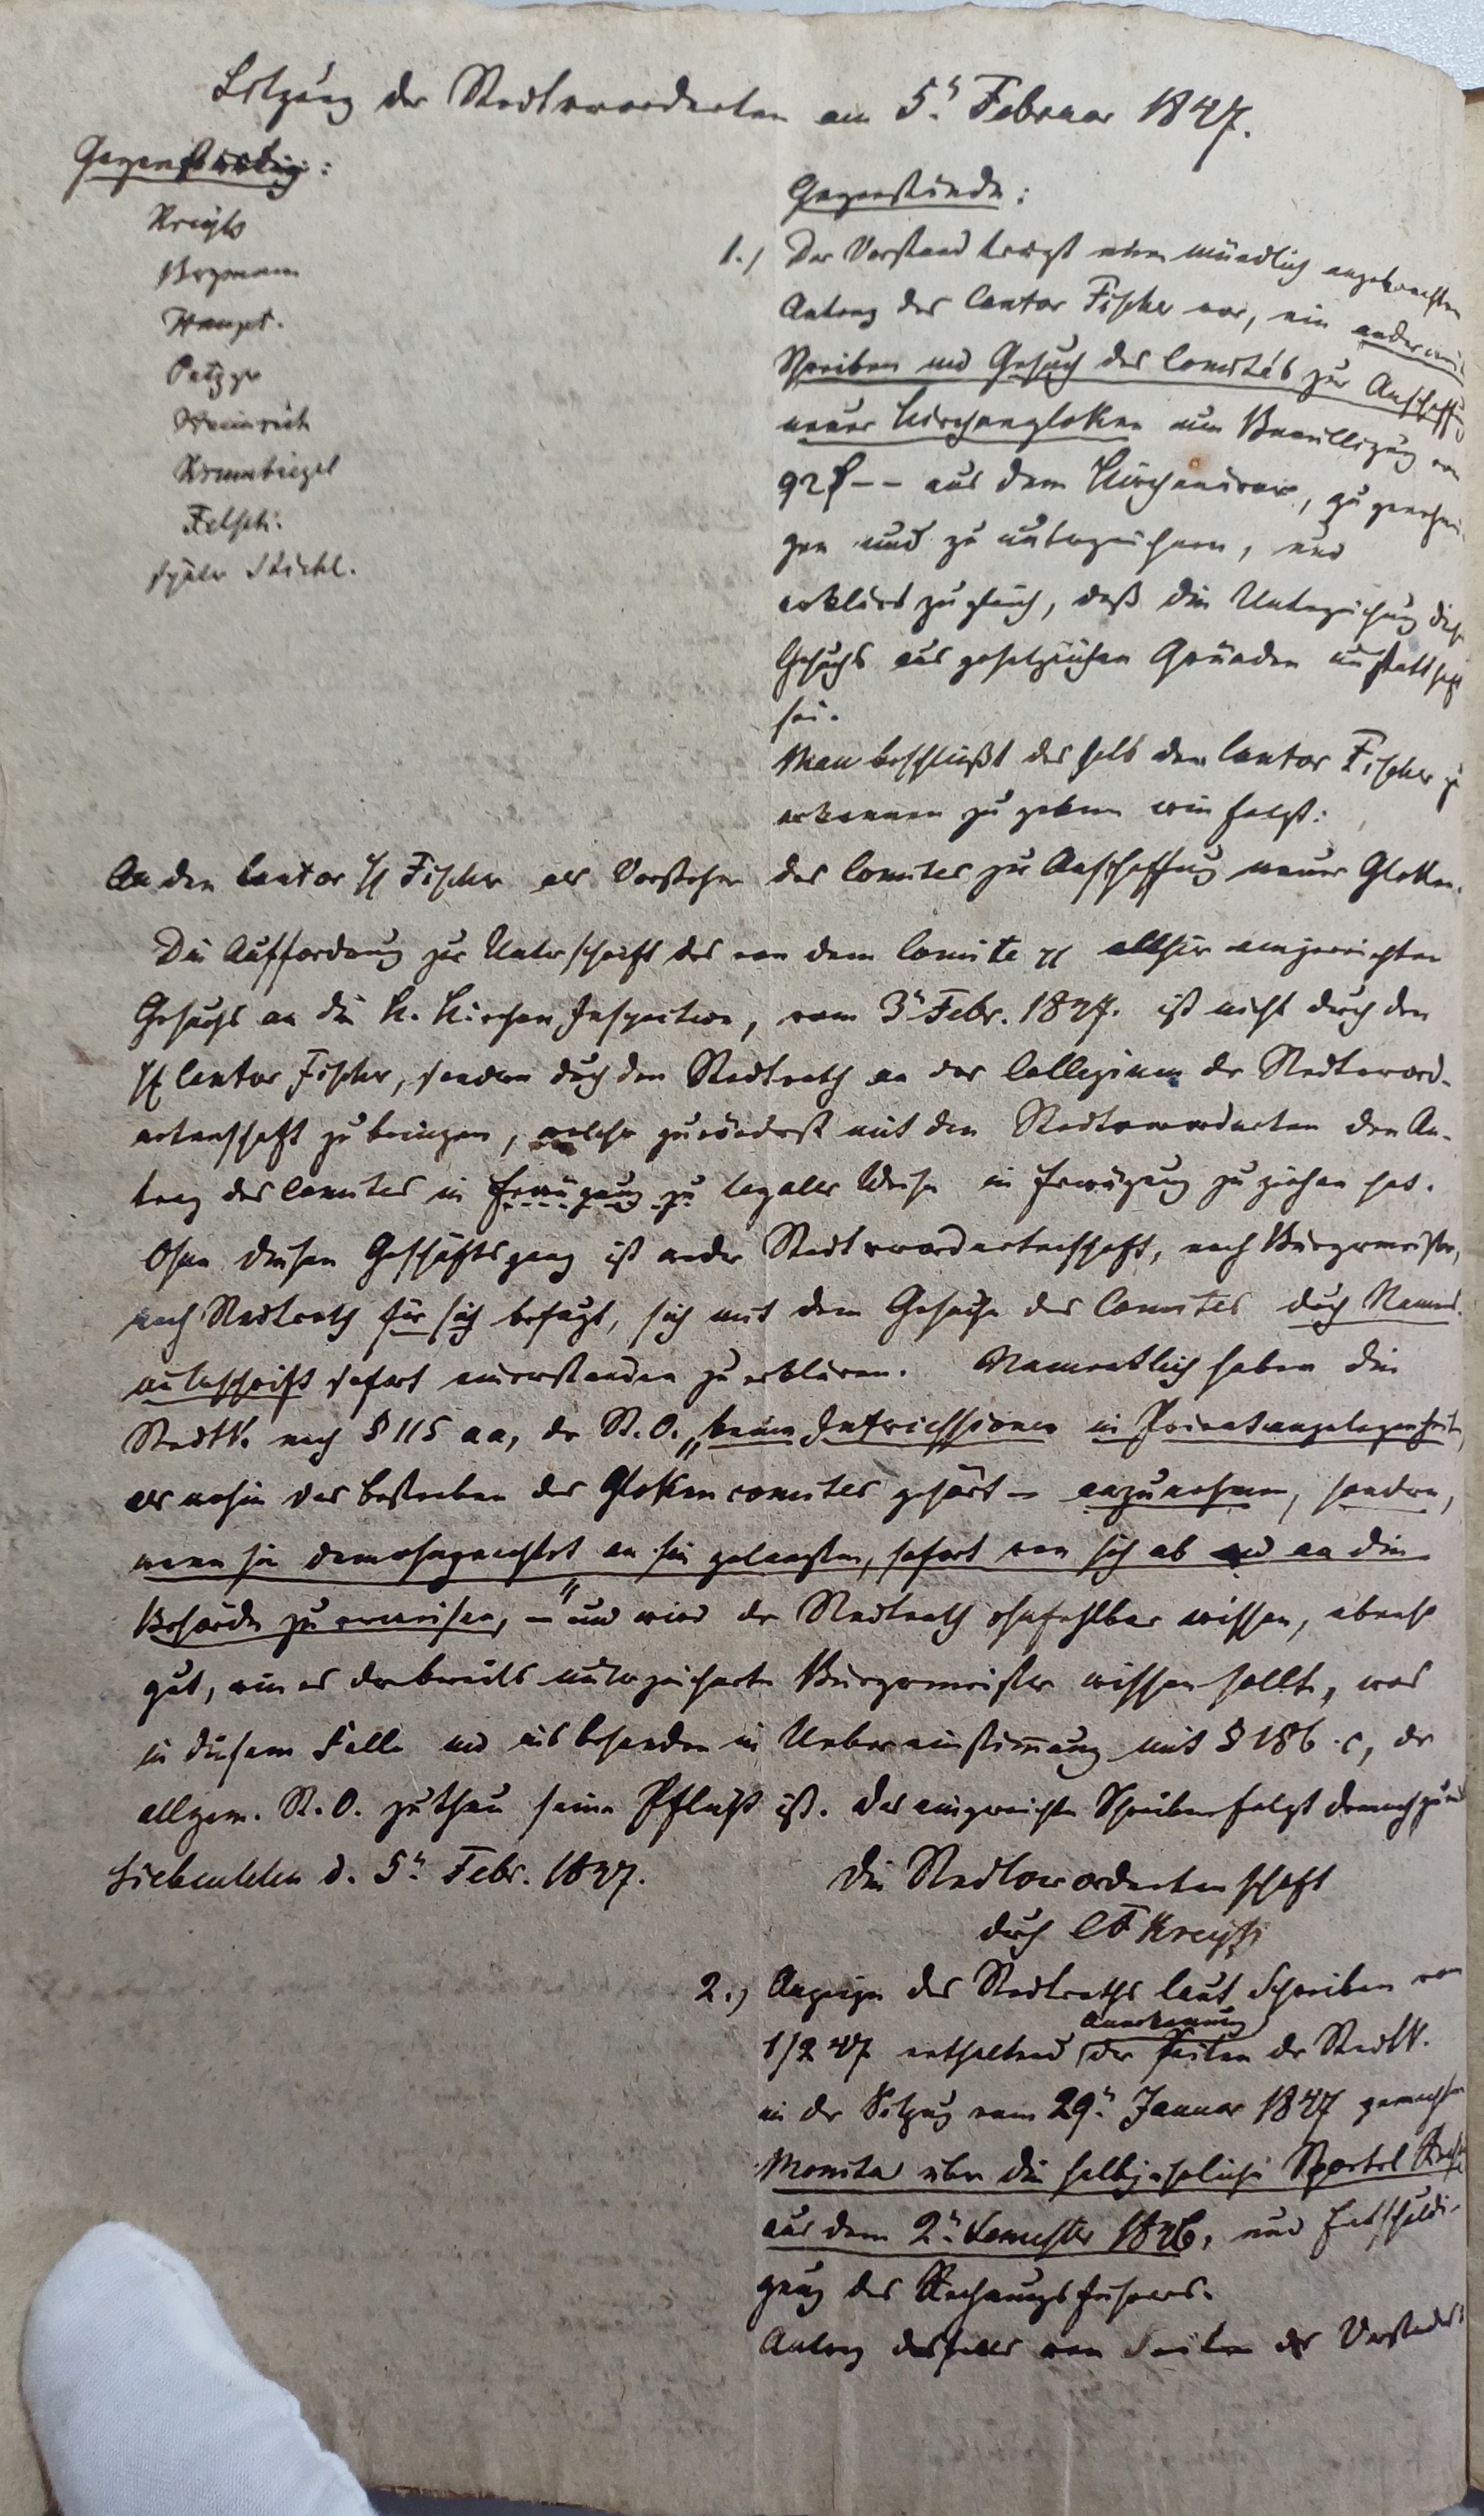 Sitzung der Stadtverordneten am 5n. Februar 1847.
Gegenwärtig:
Kreyß
Bergmann
Haupt.
Petzger
Heinrich
Krumbiegel
Felsch.
später Stichl.
Gegenstände:
1.) Der Vorstand trägt einen mündlich angebrachten
Antrag des Cantor Fischer vor, ein
Schreiben und Gesuch des Comités zur Anschaffung
neuer Kirchenglocken um Bewilligung von
92 – – aus dem Kirchenärar, zu genehmi
gen und zu unterzeichnen, und
erklärt zugleich, daß die Unterzeichnung dieses
Gesuchs aus gesetzlichen Gründen unstatthaft
sei.
Man beschließt deshalb dem Cantor Fischer zu
erkennen zu geben wie folgt:
An den Cantor H Fischer als Vorsteher des Comites zu Anschaffung neuer Glocken.
Die Aufforderung zur Unterschrift des von dem Comite allhier eingereichten
Gesuchs an die K. Kirchen Inspection, vom 3n Febr. 1847. ist nicht durch den
H Cantor Fischer, sondern durch den Stadtrath an das Collegium der Stadtverord-
netenschaft zu bringen, welcher zuvörderst mit den Stadtverordneten den An-
trag des Comites in Erwägung zu legaler Weise in Erwägung zu ziehen hat.
Ohne diesen Geschäftsgang ist weder Stadtverordnetenschaft, noch Bürgermeister,
noch Stadtrath für sich befugt, sich mit dem Gesuche des Comites durch Namens-
unterschrift sofort einverstanden zu erklären. Namentlich haben die
StadtV. nach § 115 aa, der St. O. „keine Intercessionen in Privatangelegenheiten,
als wohin das Bestreben des Glockencomites gehört – anzunehmen, sondern,
wenn sie demohngeachtet an sie gelangten, sofort von sich ab und an die
Behörde zu verweisen, –“ und wird der Stadtrath ohnfehlbar wissen, ebenso
gut, wie es der bereits unterzeichnete Bürgermeister wissen sollte, was
in diesem Falle und insbesondere in Uebereinstimmung mit § 186 c, der
allgem. St. O. zu thun seine Pflicht ist. Das eingereichte Schreiben folgt demnach zurück
Siebenlehn d. 5n. Febr. 1847.
Die Stadtverordnetenschaft
durch Kreyß
2.) Anzeige des Stadtraths laut Schreiben vom
1/2 47 enthaltend Anerkennung der Seiten der StadtV.
in der Sitzung vom 29n. Januar 1847 gemachten
Monita über die halbjährliche Sportel
aus dem 2n. Semester 1846, und Entschuldi-
gung des Rechnungsführers.
Antrag deshalb von Seiten des Vorstandes